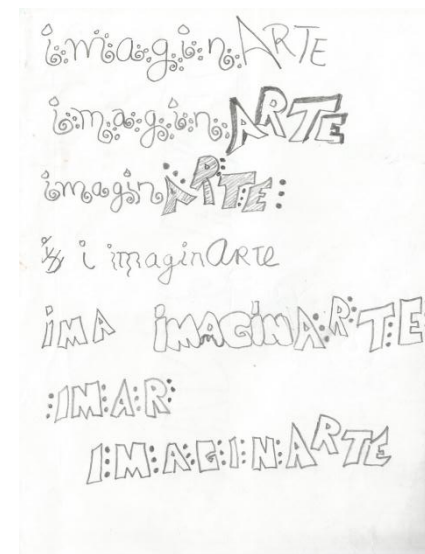 imaginARTE
imaginARTE
imaginARTE
i imaginARTE
IMA IMAGINARTE
IMAR
IMAGINARTE